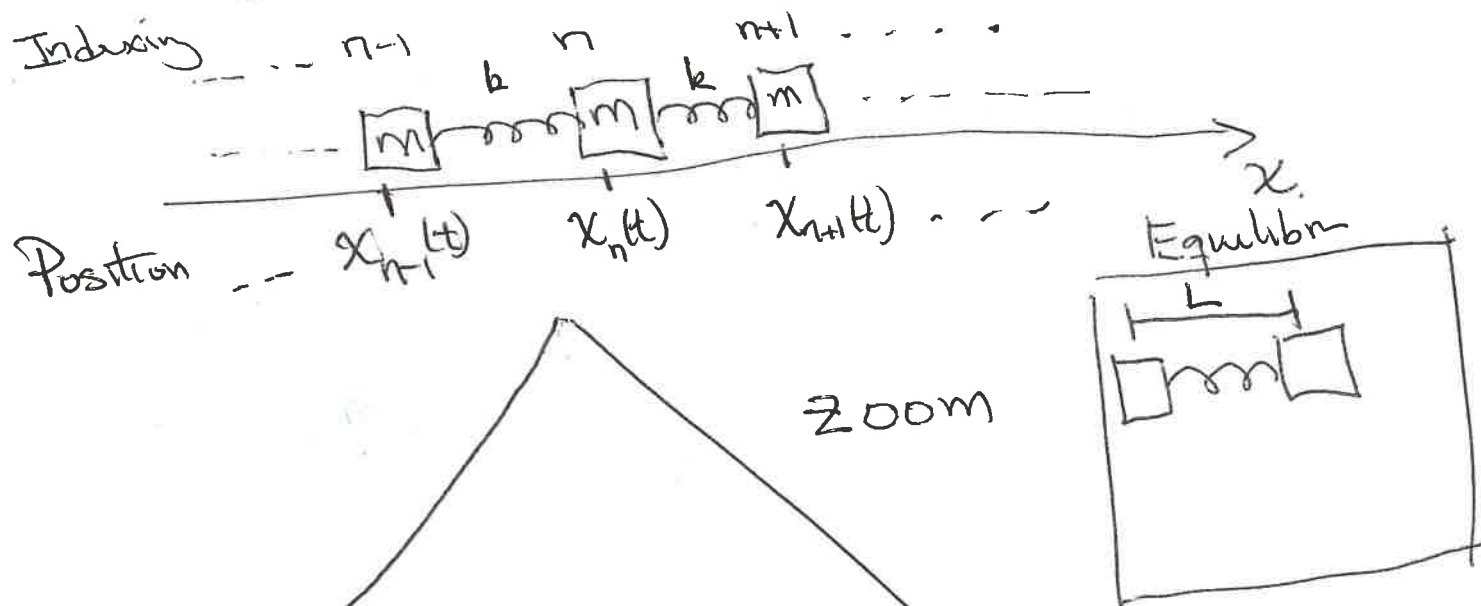 Indexing ---- n-1 n n+1 . . . .
k k
---- m m m . - - - —
x.
Position --- x_{n-1}(t) x_n(t) x_{n+1}(t) . - - -
Equilibr
L
ZOOM